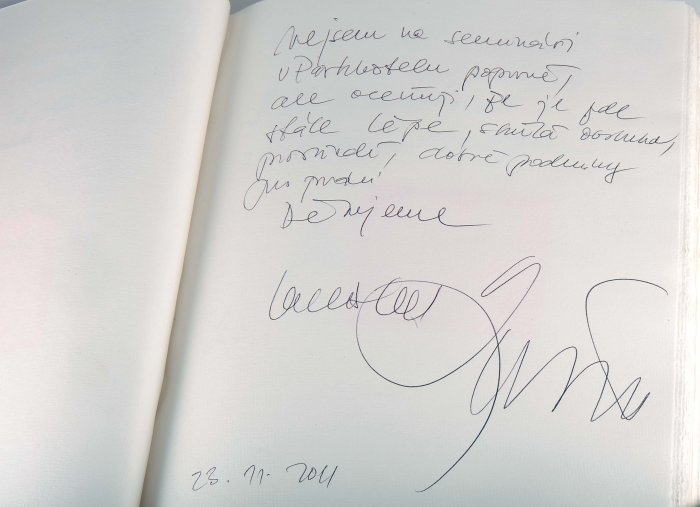 Nejsem na semináři
v Parkhotelu poprvné,
ale oceňuji, že je zde
stále lépe, skvělá
prostředí, dobré podmínky
pro práci
Děkujeme
23. 11. 2011